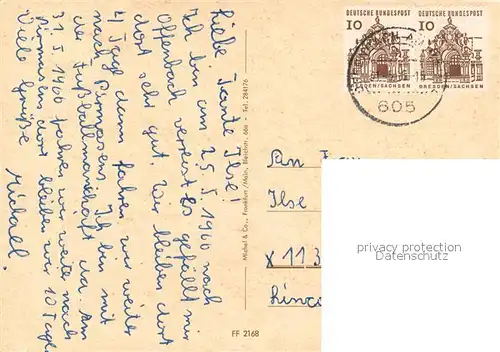 Liebe Tante Ilse!
Ich bin am 25. I. 1900 nach
Offenbach verreist. Es gefällt mir
dort sehr gut. Wir bleiben dort
4 Tage dann fahren wir weiter
nach Pirmasens. Ich bin mit
der Fußballmannschaft da. Am
31. I. 1900 fahren wir weiter nach
Pirmasens dort bleiben wir 10 Tage.
Viele Grüße
Michael.
Michel & Co., Frankfurt/Main, Bleichstr. 66a - Tel. 284176
FF 2168
DEUTSCHE BUNDESPOST
10
DRESDEN/SACHSEN
DEUTSCHE BUNDESPOST
10
DRESDEN/SACHSEN
605
Ilse
X 113
privacy protection
Datenschutz